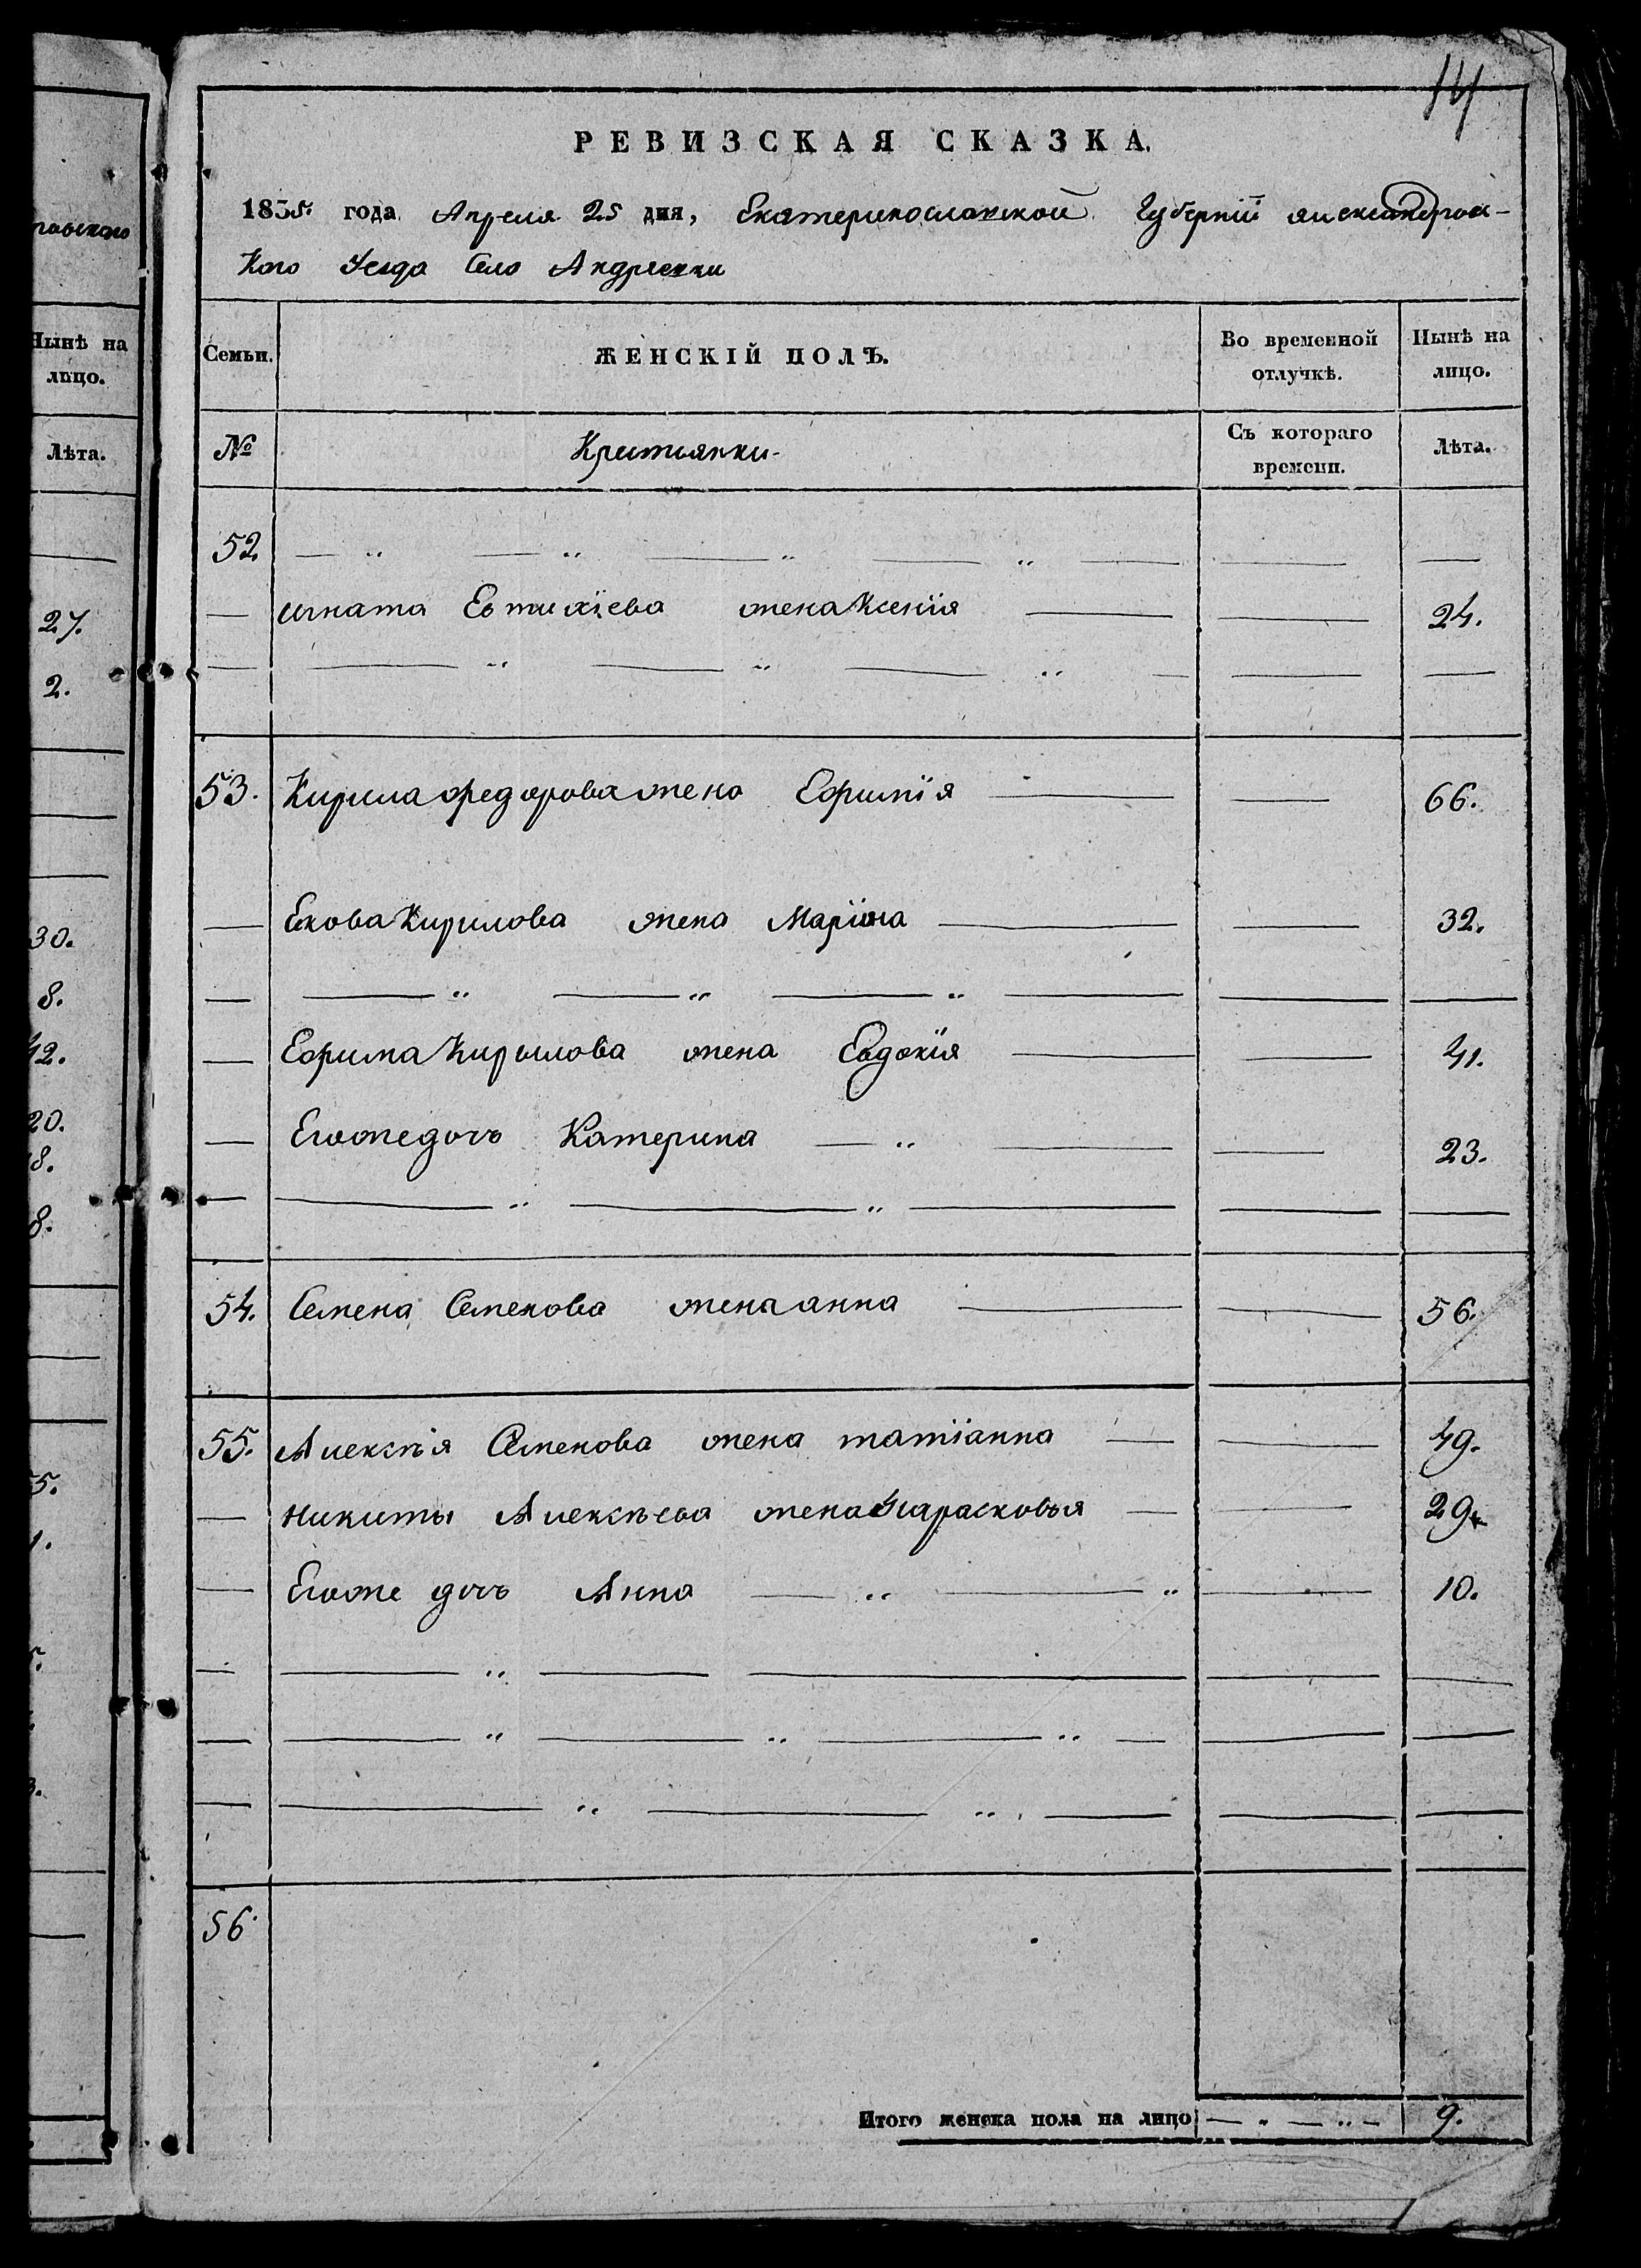 14
РЕВИЗСКАЯ СКАЗКА.
1835. года Апреля 25 дня, Екатеринославской Губернiи александровс-
кого уезда Село Андреевки
Семьи. ЖЕНСКІЙ ПОЛЪ. Во временной отлучкѣ. Нынѣ на лицо.
№ Крестьянки. Съ котораго времени. Лѣта.
52
— игната Евтихïева жена Ксенïя 24.
53. Кирила федорова жена Ефимïя 66.
— Екова Кирилова жена Марïна 32.
— Ефима Кирылова жена Евдокïя 41.
— Егоже дочь Катерина 23.
54. Семена Семенова жена анна 56.
55. Алексѣя Семенова жена татïанна 49.
— Никиты Алексѣева жена Парасковья 29.
— Егоже дочь Анна 10.
56.
Итого женска пола на лицо 9.
Нынѣ на
лицо.
Лѣта.
27.
2.
30.
8.
42.
20.
18.
8.